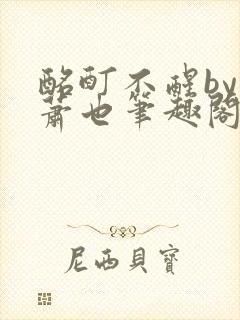 酩酊不醒by
蕭也筆趣閣
尼西貝寶